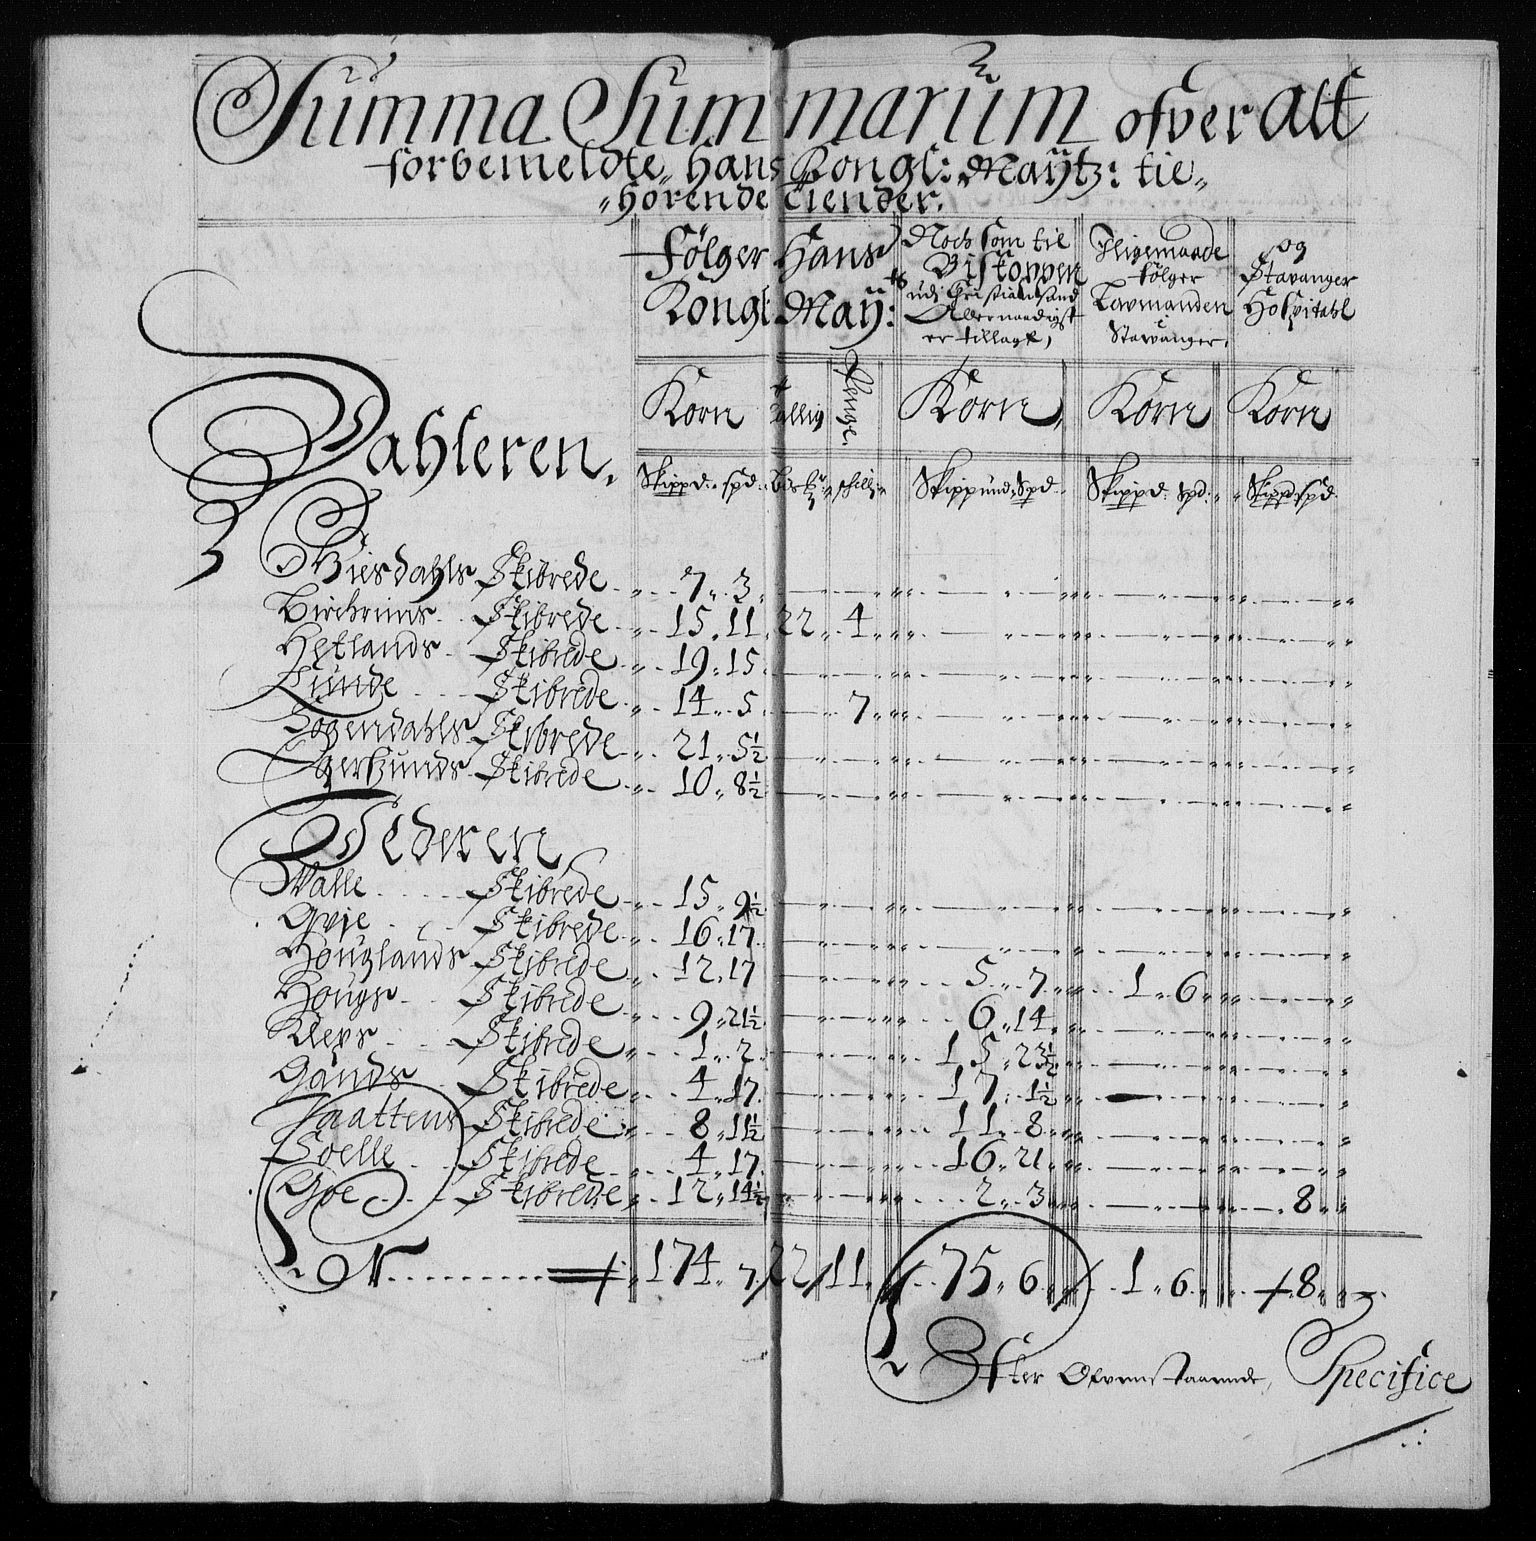 Summa Summarum ofver Alt
forbemeldte Hans Kongl: Maÿtz: tie„
„hörende tiender.
Fölger Hans Kongl: Maÿ:
Noch som til Biskoppen udj Christiansand Allernaadigst er tillagt,
Jligemaade følger Lavmanden i Stavanger.
og Stavanger Hospitahl
Korn Kallig Penge. Korn, Korn Korn
Dahleren.
Skippd: spd: Skippund: Spd. Skippd: spd: Skippd spd
Biesdahls Skibrede 7 „ 3
Birchrims Skibrede 15 „ 11 22 „ 4
Hetlands Skibrede 19 „ 15
Lunde Skibrede 14 „ 5 7
Sogendahls Skibrede 21 „ 5½
Egersunds Skibrede 10 „ 8½
Jederen
Walle Skibrede 15 „ 9½
Qvje Skibrede 16 „ 17
Houglands Skibrede 12 „ 17 5 „ 7 1 „ 6
Hougs Skibrede 9 „ 21½ 6 „ 14
Kleps Skibrede 1 „ 2 15 „ 23½
Gands Skibrede 4 „ 17 17 „ 1½
Haattens Skibrede 8 „ 11½ 11 „ 8
Soelle Skibrede 4 „ 17 16 „ 21
Goe Skibrede 12 „ 14½ 2 „ 3 8
174 „ 7 / 22 / 11 75 „ 6 1 „ 6 8
Efter Ofvenstaaende, Specifice